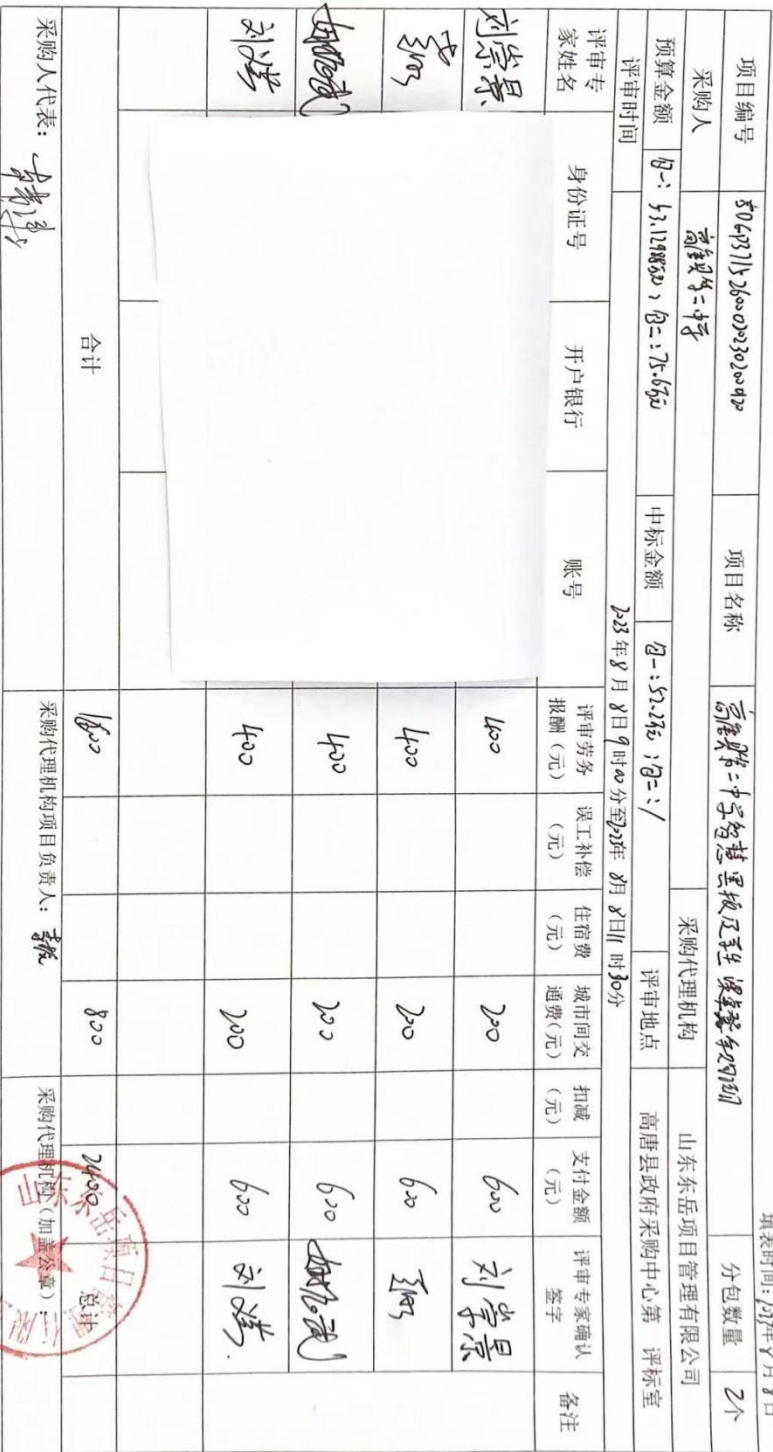 填表时间：2023年8月8日
项目编号 项目名称 高唐县第二中学智慧黑板及学生课桌凳采购项目 分包数量 2个
采购人 高唐县第二中学 采购代理机构 山东东岳项目管理有限公司
预算金额 包一：53.1298万元，包二：75.6万元 中标金额 包一：52.2万元；包二：/ 评审地点 高唐县政府采购中心第 评标室
评审时间 2023年8月8日9时00分至2023年8月8日11时30分
评审专家姓名 身份证号 开户银行 账号 评审劳务报酬（元） 误工补偿（元） 住宿费（元） 城市间交通费（元） 扣减（元） 支付金额（元） 评审专家确认签字 备注
刘崇景 400 200 600 刘崇景
400 200 600
400 200 600
400 200 600
合计 1600 800 2400 总计
采购人代表： 采购代理机构项目负责人： 采购代理机构（加盖公章）：